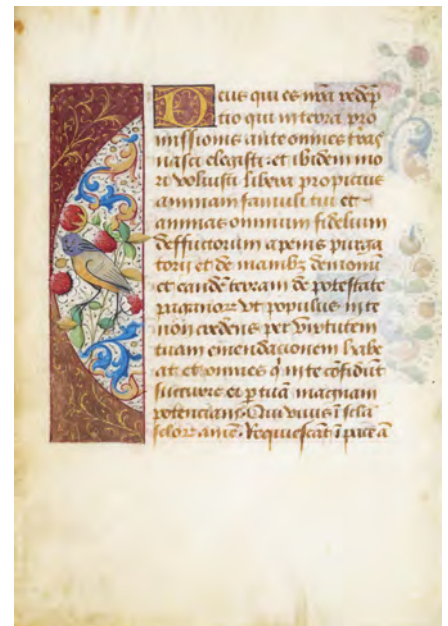 Deus qui es nr̄a redēp
tio qui in terra pro
missionis ante omnes t̄ras
nasci elegisti et ibidem mo
ri voluisti libera propicius
animam famuli tui et
animas omnium fidelium
deffunctorum a penis purga
torii et de manibꝫ demonū
et eandē terram de potestate
paganoꝝ vt populus in te
non credens per virtutem
tuam emendacionem habe
at et omnes q̄ in te cōfidūt
succurre ei p tuā magnam
potenciam. Qui viuis ī scl̄a
scl̄oꝝ amē. Requiescāt ī pace ā